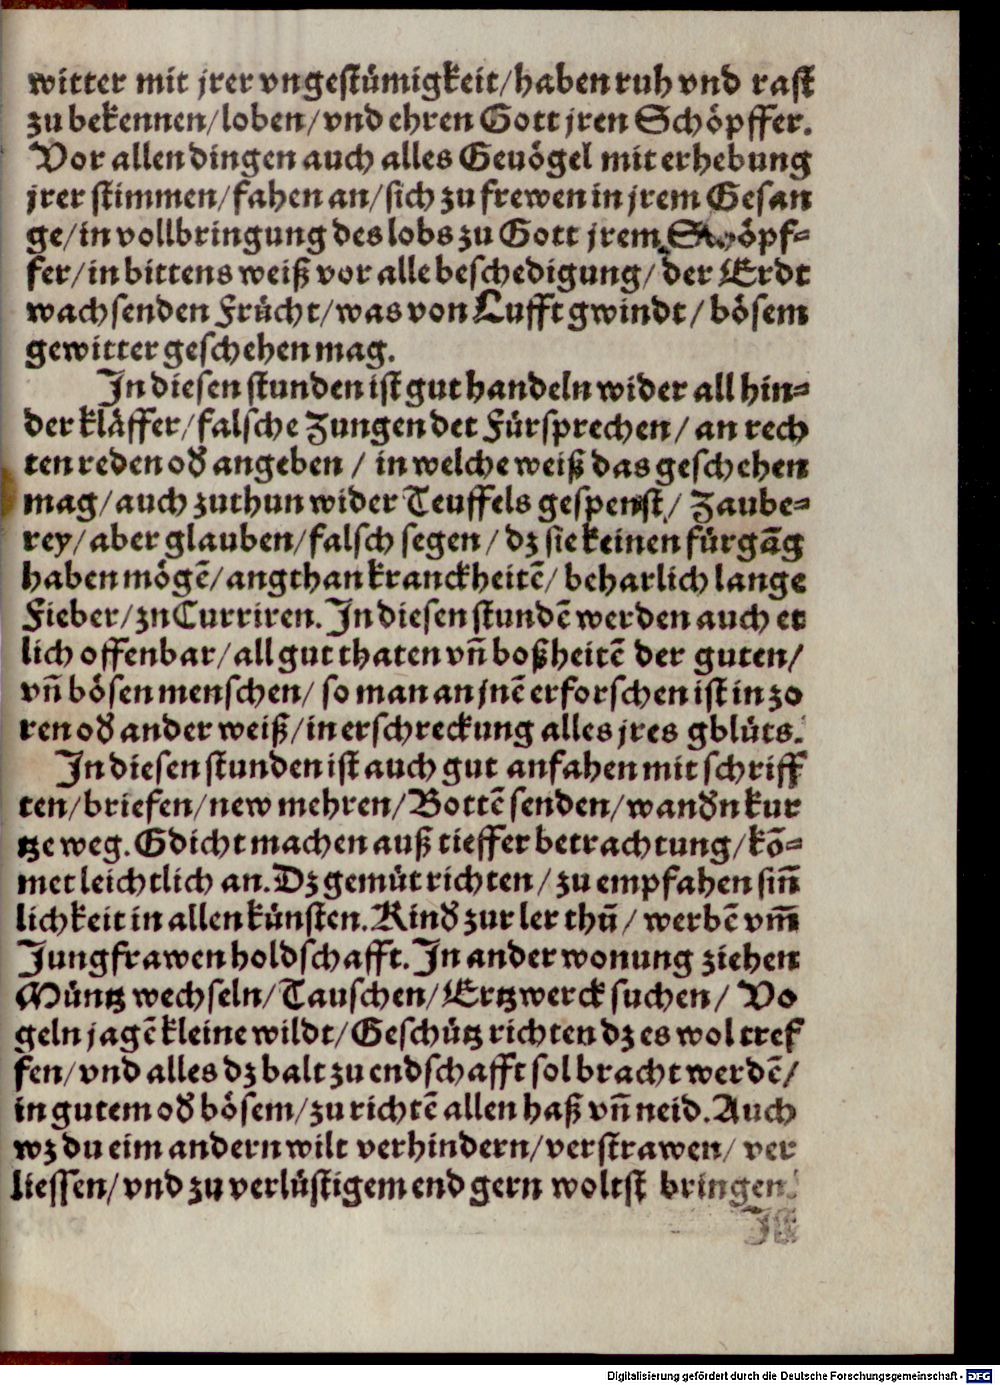 witter mit jrer vngestümigkeit/haben ruh vnd rast
zu bekennen/loben/vnd ehren Gott jren Schöpffer.
Vor allen dingen auch alles Geuögel mit erhebung
jrer stimmen/fahen an/sich zu frewen in jrem Gesan
ge/in vollbringung des lobs zu Gott jrem Schöpf=
fer/in bittens weiß vor alle beschedigung/der Erdt
wachsenden Frücht/was von Lufft gwindt/bösem
gewitter geschehen mag.
In diesen stunden ist gut handeln wider all hin=
der kläffer/falsche Zungen det Fürsprechen/an rech
ten reden oď angeben/in welche weiß das geschehen
mag/auch zuthun wider Teuffels gespenst/Zaube=
rey/aber glauben/falsch segen/dz sie keinen fürgãg
haben mögẽ/angthan kranckheitẽ/beharlich lange
Fieber/zn Curriren. In diesen stundẽ werden auch et
lich offenbar/all gutthaten vñ boßheitẽ der guten/
vñ bösen menschen/so man an jnẽ erforschen ist in zo
ren oď ander weiß/in erschreckung alles jres gblüts.
In diesen stunden ist auch gut anfahen mit schriff
ten/briefen/new mehren/Bottẽ senden/wanďn kur
tze weg. Gdicht machen auß tieffer betrachtung/kõ=
met leichtlich an. Dz gemüt richten/zu empfahen siñ
lichkeit in allen künsten. Kinď zur ler thũ/werbẽ vm̃
Jungfrawen holdschafft. In ander wonung ziehen
Müntz wechseln/Tauschen/Ertzwerck suchen/Vo
geln jagẽ kleine wildt/Geschütz richten dz es wol tref
fen/vnd alles dz balt zu endschafft sol bracht werdẽ/
in gutem oď bösem/zu richtẽ allen haß vñ neid. Auch
wz du eim andern wilt verhindern/verstrawen/ver
liessen/vnd zu verlüstigem end gern woltst bringen.
Digitalisierung gefördert durch die Deutsche Forschungsgemeinschaft - DFG